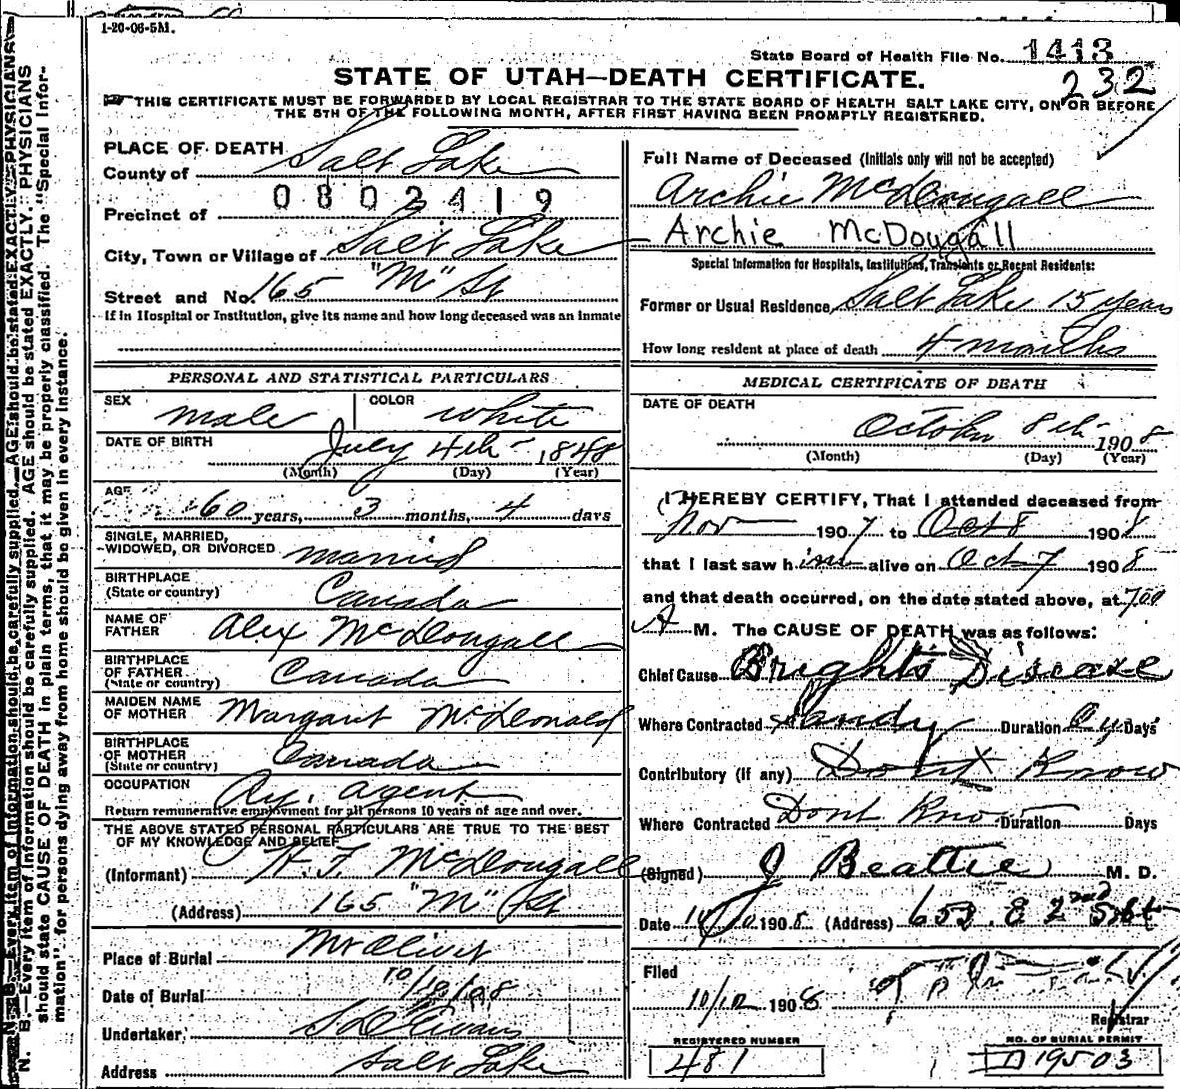 1-20-06-5M.
State Board of Health File No. 1413
232
STATE OF UTAH—DEATH CERTIFICATE.
THIS CERTIFICATE MUST BE FORWARDED BY LOCAL REGISTRAR TO THE STATE BOARD OF HEALTH SALT LAKE CITY, ON OR BEFORE
THE 5TH OF THE FOLLOWING MONTH, AFTER FIRST HAVING BEEN PROMPTLY REGISTERED.
PLACE OF DEATH
County of Salt Lake
0802419
Precinct of
City, Town or Village of Salt Lake
Street and No. 165 "M" St
If in Hospital or Institution, give its name and how long deceased was an inmate
PERSONAL AND STATISTICAL PARTICULARS
SEX male COLOR white
DATE OF BIRTH July 4th 1848
(Month) (Day) (Year)
AGE 60 years, 3 months, 4 days
SINGLE, MARRIED,
WIDOWED, OR DIVORCED married
BIRTHPLACE
(State or country) Canada
NAME OF
FATHER Alex McDougall
BIRTHPLACE
OF FATHER
(State or country) Canada
MAIDEN NAME
OF MOTHER Margaret McDonald
BIRTHPLACE
OF MOTHER
(State or country) Canada
OCCUPATION Ry. agent
Return remunerative employment for all persons 10 years of age and over.
THE ABOVE STATED PERSONAL PARTICULARS ARE TRUE TO THE BEST
OF MY KNOWLEDGE AND BELIEF
(Informant) H. F. McDougall
(Address) 165 "M" St
Place of Burial Mt Olivet
Date of Burial 10/10/08
Undertaker, S D Evans
Address Salt Lake
Full Name of Deceased (Initials only will not be accepted)
Archie McDougall
Archie McDougall
Special Information for Hospitals, Institutions, Transients or Recent Residents:
Former or Usual Residence Salt Lake 15 years
How long resident at place of death 4 months
MEDICAL CERTIFICATE OF DEATH
DATE OF DEATH
October 8th 1908
(Month) (Day) (Year)
I HEREBY CERTIFY, That I attended deceased from
Nov 1907 to Oct 8 1908
that I last saw him alive on Oct 7 1908
and that death occurred, on the date stated above, at 7.00
A M. The CAUSE OF DEATH was as follows:
Chief Cause Brights Disease
Where Contracted Sandy Duration Days
Contributory (if any) Dont Know
Where Contracted Dont Kno Duration Days
(Signed) J Beattie M. D.
Date 10/10 1908 (Address) 653. E 2nd So St
Filed
10/12 1908
Registrar
REGISTERED NUMBER
481
NO. OF BURIAL PERMIT
D 19503
N. B.—Every item of information should be carefully supplied. AGE should be stated EXACTLY. PHYSICIANS
should state CAUSE OF DEATH in plain terms, that it may be properly classified. The "Special Infor-
mation" for persons dying away from home should be given in every instance.